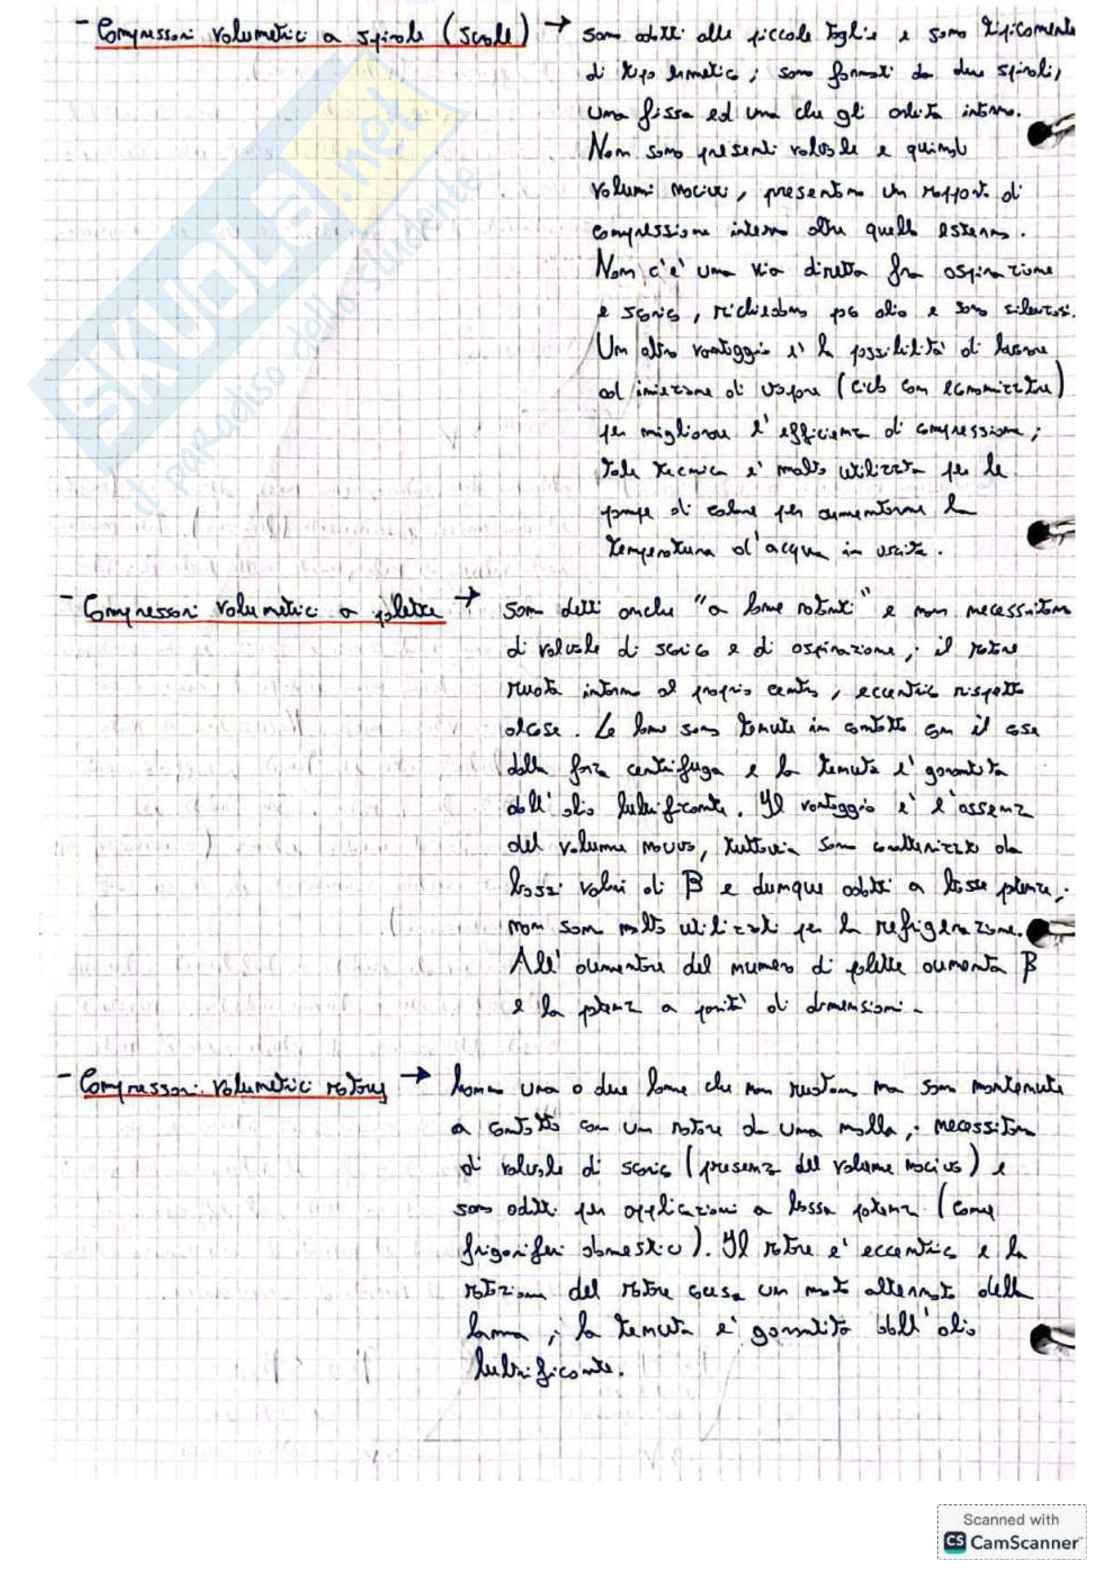 - Compressori volumetrici a spirale (scroll) → sono adatti alle piccole taglie e sono tipicamente
di tipo ermetico; sono formati da due spirali,
una fissa ed una che gli orbita intorno.
Non sono presenti valvole e quindi
volumi nocivi, presentano un rapporto di
compressione interno oltre quello esterno.
Non c'è una via diretta fra aspirazione
e scarico, richiedono poco olio e sono silenziosi.
Un altro vantaggio è la possibilità di lavorare
ad iniezione di vapore (ciclo con economizzatore)
per migliorare l'efficienza di compressione;
tale tecnica è molto utilizzata per le
pompe di calore per aumentarne la
temperatura d'acqua in uscita.
- Compressori volumetrici a palette → sono detti anche "a lame rotanti" e non necessitano
di valvole di scarico e di aspirazione; il rotore
ruota intorno al proprio centro, eccentrico rispetto
al case. Le lame sono tenute in contatto con il case
dalla forza centrifuga e la tenuta è garantita
dall'olio lubrificante. Il vantaggio è l'assenza
del volume nocivo, tuttavia sono caratterizzati da
bassi valori di β e dunque adatti a basse potenze;
non sono molto utilizzati per la refrigerazione.
All'aumentare del numero di palette aumenta β
e la potenza a parità di dimensioni.
- Compressori volumetrici rotary → hanno una o due lame che non ruotano ma sono mantenute
a contatto con un rotore da una molla; necessitano
di valvole di scarico (presenza del volume nocivo) e
sono adatti per applicazioni a bassa potenza (come
frigoriferi domestici). Il rotore è eccentrico e la
rotazione del rotore causa un moto alternato della
lama; la tenuta è garantita dall'olio
lubrificante.
SKUOLA.net
il paradiso dello studente
Scanned with
CS CamScanner